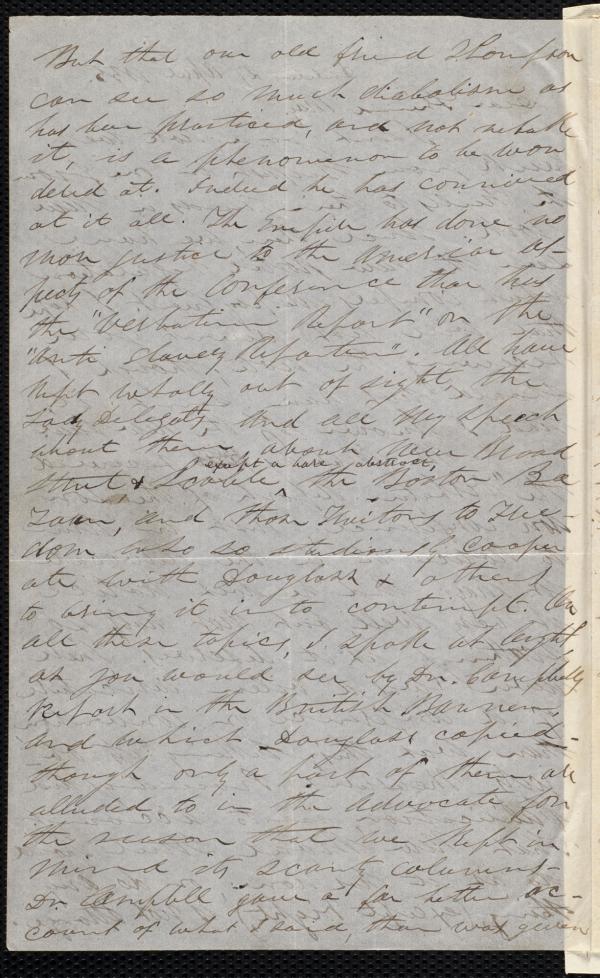 But that our old friend Thompson
can see so much diabolism as
has been practiced, and not rebuke
it, is a phenomenon to be won
dered at. Indeed he has connived
at it all. The Empire has done no
more justice to the American as-
pects of the Conference than has
the "Verbatim Report" or the
"Anti Slavery Reporter". All have
kept wholly out of sight, the
Lady Delegates, and all my speech
about them, about New Broad
Street & Scoble,
except a bare abstract,
the Boston Ba
zaar, and those Traitors to Free-
dom who so studiously cooper
ate with Douglass & others
to bring it into contempt. On
all these topics, I spoke at length
as you would see by Dr. Campbell's
Report in the British Banner,
and which Douglass copied -
though only a part of them are
alluded to in the Advocate for
the reason that we kept in
mind its scanty columns -
Dr Campbell gave a far better ac-
count of what I said, than was given